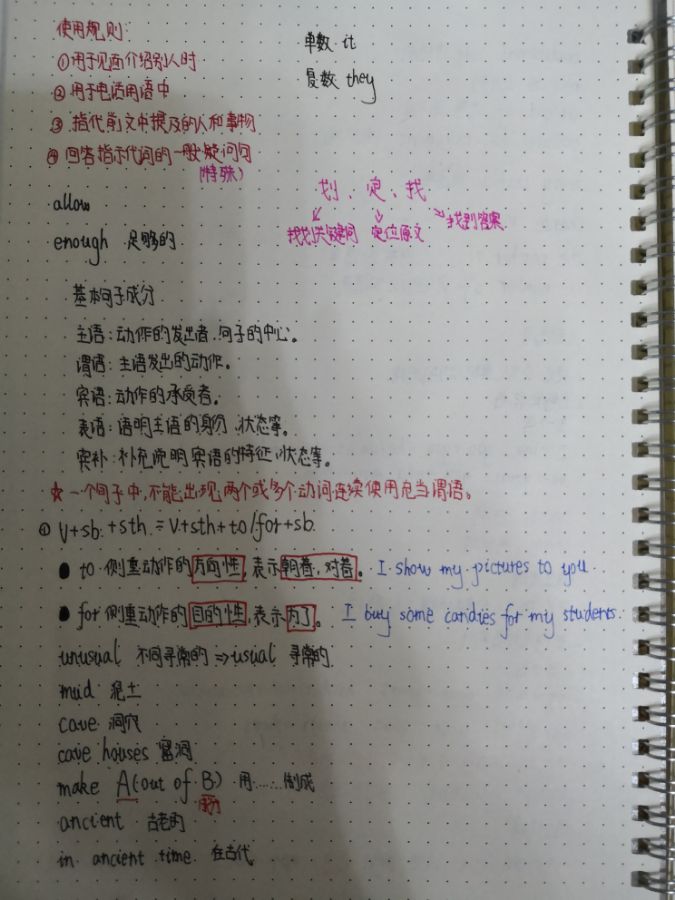 使用规则:
①用于见面介绍别人时
②用于电话用语中
③指代前文中提及的人和事物
④回答指示代词的一般疑问句
(特殊)
单数 it
复数 they
allow
enough 足够的
划、定、找
找划关键词 定位原文 找到答案
基本句子成分
主语:动作的发出者.句子的中心。
谓语:主语发出的动作。
宾语:动作的承受者。
表语:语明主语的身份、状态等。
宾补:补充说明宾语的特征、状态等。
☆一个句子中,不能出现两个或多个动词连续使用充当谓语。
① V+sb.+sth.=V+sth+to/for+sb.
● to 侧重动作的方向性,表示朝着,对着。 I show my pictures to you
● for 侧重动作的目的性,表示为了。 I buy some candies for my students.
unusual 不同寻常的 ⇒ usual 寻常的
mud 泥土
cave 洞穴
cave houses 窑洞
make A(out of B) 用……制成
ancient 古老的
in ancient time 在古代